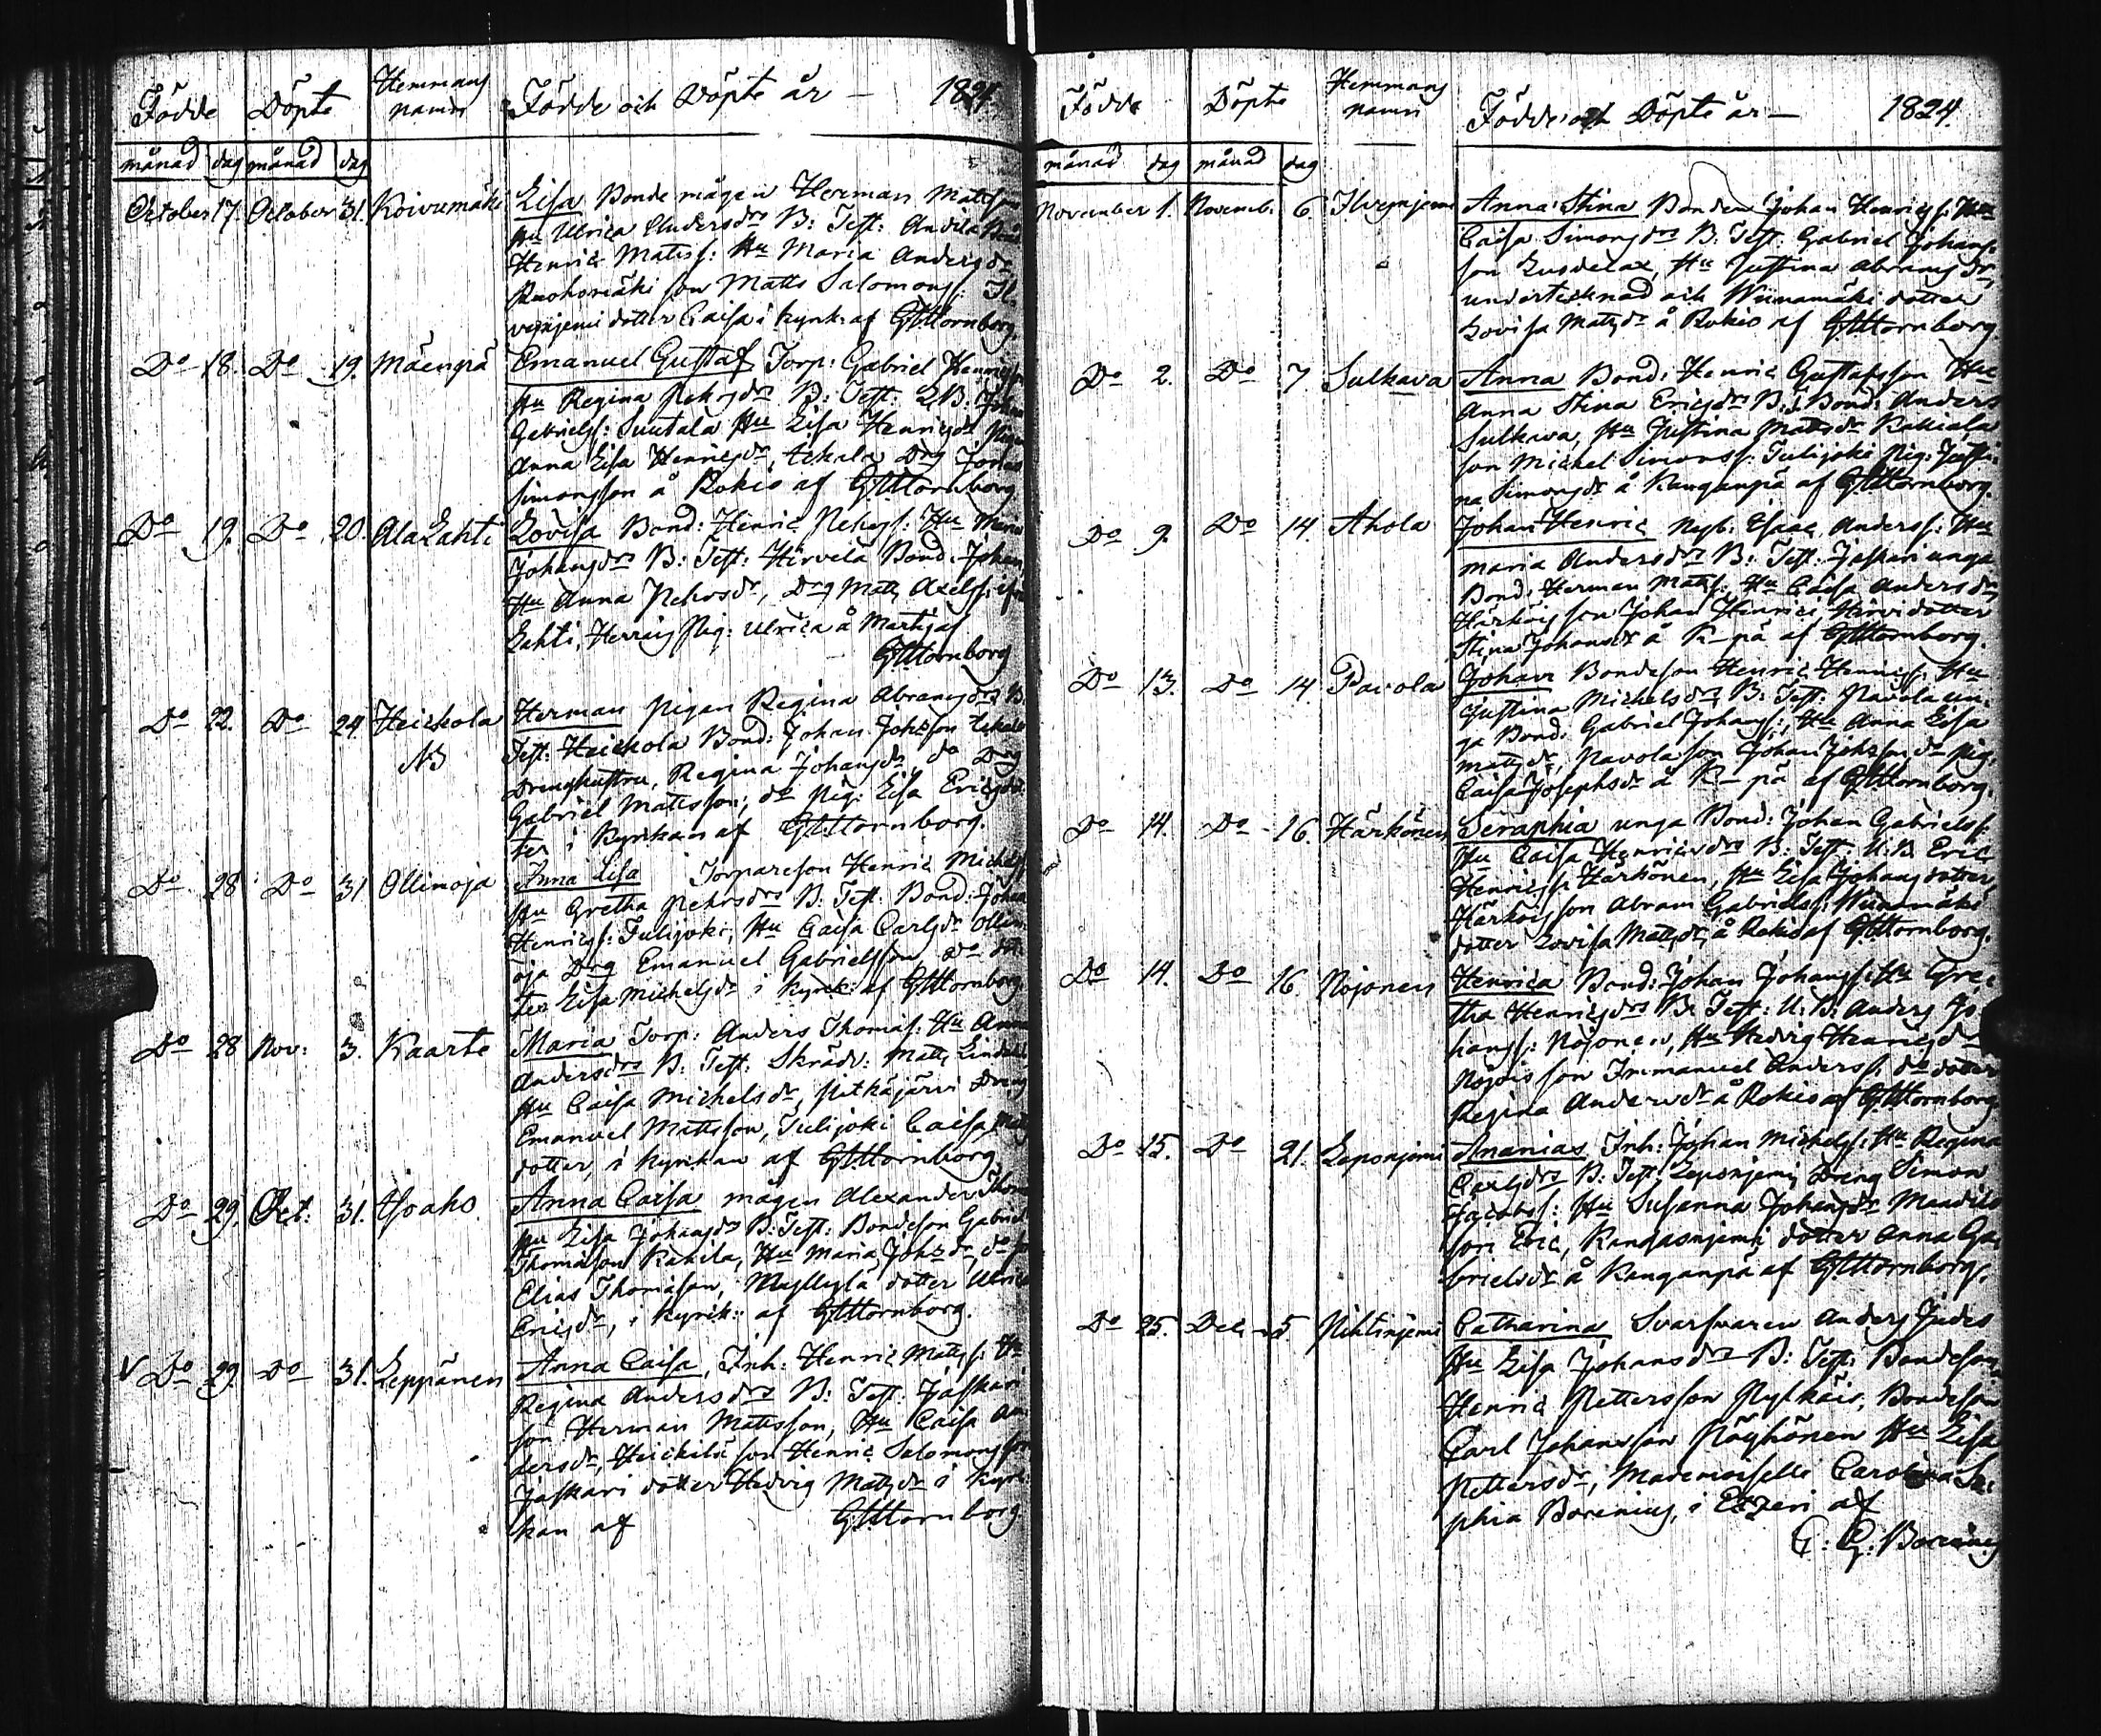 Födde Döpte Hemmans namn Födde och Döpte år — 1824.
månad dag månad dag
October 17. October 31. Koivumäki Lisa Bonde mågen Herman Mattss
Hu Ulrica Andersdrs B: Test: Anvila Bond
Henric Matss: Hu Maria Andersdr
Ruohomäki son Matts Salomonss: Il-
vesnjemi dotter Caisa i kyrk: af GTornborg.
Do 18. Do 19. Mäenpä Emanuel Gustaf Torp: Gabriel Henricss
Hu Regina Pehrsdrs B: Test: B: Johan
Gabrielss: Suutala Hu Lisa Henricsdr Pigan
Anna Lisa Henricsdr, Drg Jonas
Simonsson å Rokio af GTornborg
Do 19. Do 20. Ala Lahti Lovisa Bond: Henric Pehrss: Hu Maria
Johansdrs B: Test: Hirvelä Bond: Johan
Hu Anna Pehrsdr, Drg Matts Axelss:
Lahti, Pig: Ulrica å Martis af
GTornborg
Do 22. Do 24 Heickola Herman pigan Regina Abramsdrs B:
NB Test: Heickola Bond: Johan Johsson
Drenghustru, Regina Johansdr, do Drg
Gabriel Mattsson; do Pig: Lisa Ericsdot
ter i Kyrkan af GTornborg.
Do 28 Do 31 Ollinoja Anna Lisa Torpareson Henric Michelss
Hu Gretha Pehrsdrs B: Test: Bond: Johan
Henricss: Tulijoki, Hu Caisa Carlsdr Ollin
oja Drg Emanuel Gabrielsson, Do dot
ter Lisa Michelsdr i kyrk: af GTornborg.
Do 28 Nov: 3. Kaarte Maria Torp: Anders Thomass: Hu Anna
Andersdrs B: Test: Skrädd: Matts
Hu Caisa Michelsdr, Pitkäjärvi Dreng
Emanuel Mattsson, Tulijoki Caisa Matts
dotter, i Kyrkan af GTornborg
Do 29. Oct: 31. Isoaho Anna Caisa mågen Alexander Thom
Hu Lisa Johansdrs B: Test: Bondeson Gabriel
Thomasson Rahila, Hu Maria Johsdr, do son
Elias Thomasson, Myllylä dotter Ulrica
Ericsdr, i Kyrk: af GTornborg.
V Do 29. Do 31. Leppänen Anna Caisa, Inh: Henric Mattss: Hu
Regina Andersdrs B: Test: Jaskari
son Herman Mattsson, Hu Caisa An
dersdr, Heickilä son Henric Salomonsson
Jaskari dotter Hedvig Mattsdr i Kyr
kan af GTornborg.
Födde Döpte Hemmans namn Födde och Döpte år — 1824.
månad dag månad dag
November 1. Novemb: 6 Ilvesnjemi Anna Stina Bonden Johan Henricss: Hu
Caisa Simonsdrs B: Test: Gabriel Johans
son Hu Justina Abramsdr,
undertecknad och Wiinamäki dotter
Lovisa Mattsdr å Rokio af GTornborg.
Do 2. Do 7 Sulkava Anna Bond: Henric Gustafsson Hu
Anna Stina Ericsdrs B: T: Bond: Anders
Sulkava, Hu Justina Mattsdr Rakiala
son Michel Simonss: Tulijoki Pig: Justi
na Simonsdr å Kanganpä af GTornborg.
Do 9. Do 14. Ahola Johan Henric Nyb: Esaac Anderss: Hu
Maria Andersdrs B: Test: Jaskari unga
Bond: Herman Mattss: Hu Caisa Andersdr,
Härkois son Johan Henrici dotter
Stina Johansdr å K—pä af GTornborg.
Do 13. Do 14 Pavola Johan Bondeson Henric Henricss: Hu
Justina Michelsdrs B: Test: Pavola un
ga Bond: Gabriel Johanss: Hu Anna Lisa
Mattsdr, Pavola son Johan Johsson, do pig:
Caisa Josephsdr å K—pä af GTornborg.
Do 14. Do 16. Härkönen Seraphia unga Bond: Johan Gabrielss:
Hu Caisa Henricsdrs B: Test: U: B: Eric
Henricss: Härkönen, Hu Lisa Johansdotter,
Härkois son Abram Gabrielss: Wiinamäki
dotter Lovisa Mattsdr, å Rokio af GTornborg.
Do 14. Do 16. Nojonen Henrica Bond: Johan Johanss: Hu Gre:
tha Henricsdrs B: Test: U: B: Anders Jo
hanss: Nojonen, Hu Hedvig Henricsdr
Nojois son Immanuel Anderss: do dotter
Regina Andersdr å Rokio af GTornborg
Do 15. Do 21. Leponjemi Ananias Inh: Johan Michelss: Hu Regina
Carlsdrs B: Test: Leponjemi Dreng Simon
Jacobss: Hu Susanna Johansdr
son Eric, Kangasnjemi dotter Anna Ga
brielsdr å Kanganpä af GTornborg.
Do 25. Dec: 5. Nihtinjemi Catharina Svarfvaren Anders Judes
Hu Lisa Johansdrs B: Test: Bondeson
Henric Pettersson Pylkäis, Bondeson
Carl Johansson Pöyhönen Hu Lisa
Pettersdr, Mademoiselle Carolina So:
phia Borenius, i Etzeri af
G: G: Borenius